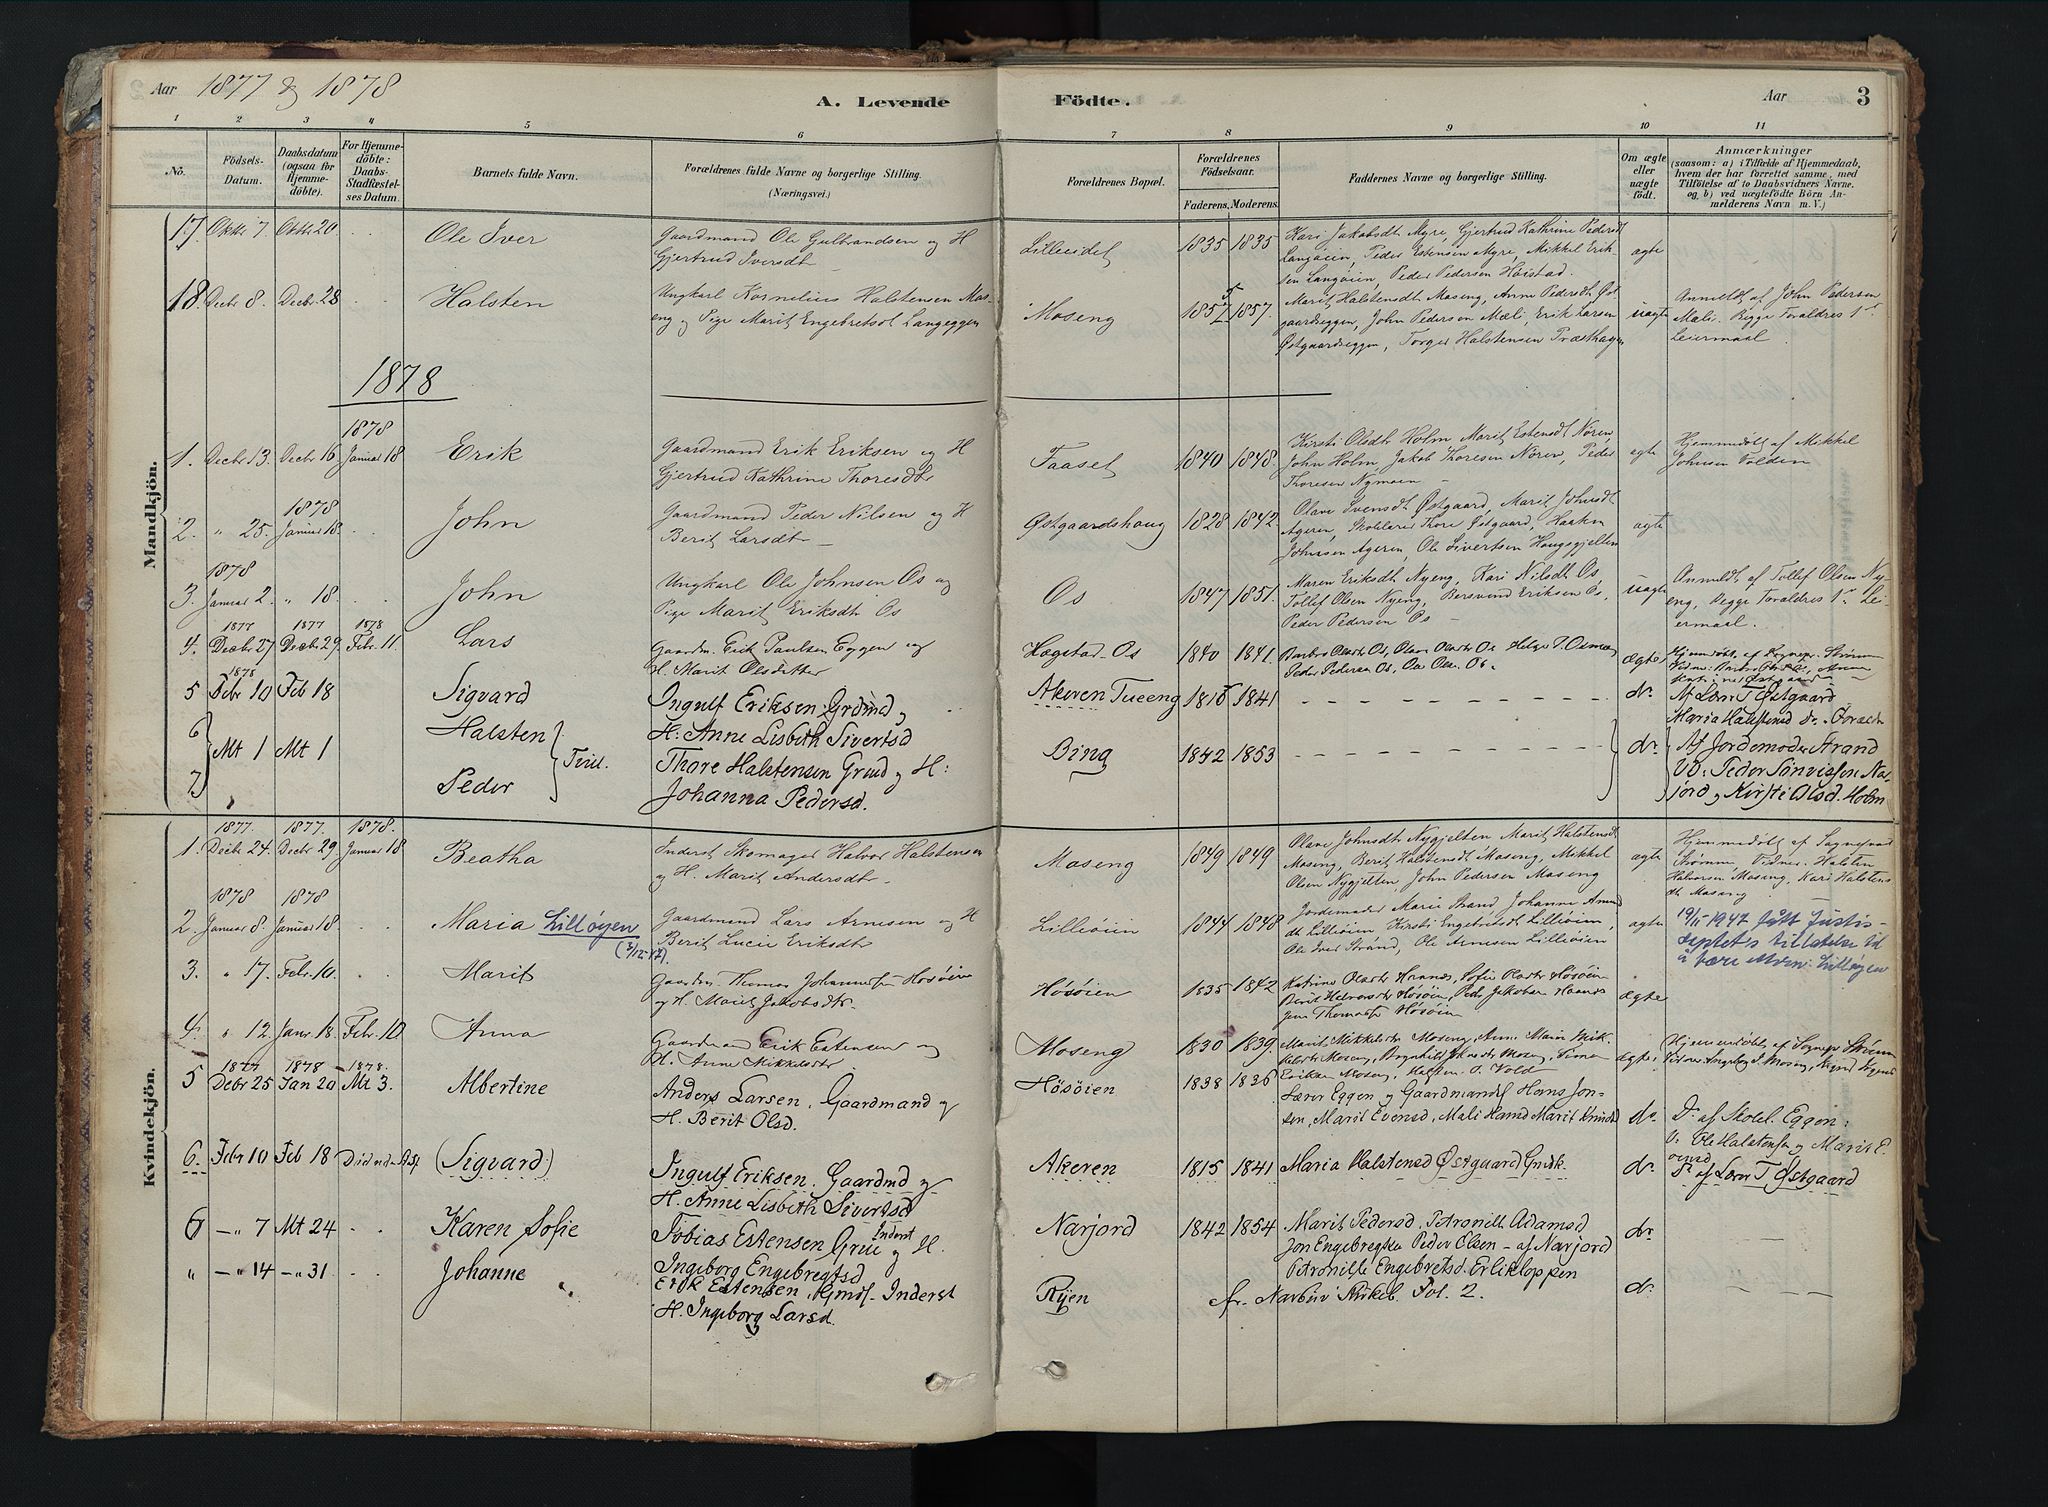 Aar 1877 & 1878
A. Levende Födte. Aar 3
1 2 3 4 5 6 7 8 9 10 11
No.
Födsels-Datum.
Daabsdatum (ogsaa for Hjemme-döbte).
For Hjemme-döbte: Daabs-Stadfæstel-ses Datum.
Barnets fulde Navn.
Forældrenes fulde Navne og borgerlige Stilling. (Næringsvei.)
Forældrenes Bopæl.
Forældrenes Födselsaar.
Faderens. Moderens.
Faddernes Navne og borgerlige Stilling.
Om ægte eller uægte födt.
Anmærkninger
(saasom: a) i Tilfælde af Hjemmedaab,
hvem der har forrettet samme, med
Tilföielse af to Daabsvidners Navne.
og b) ved uægtefödte Börn An-
melderens Navn m. V.)
Mandkjön.
17. Oktb 7. Oktb 20 Ole Iver
Gaardmand Ole Gulbrandsen og H
Gjertrud Iversdt
Lilleeidet 1835 1835
Kari Jakobsdt Myre, Gjertrud Kathrine Pedersdt
Langøien, Peder Estensen Myre, Mikkel Erik-
sen Langøien, Peder Pedersen Høistad.
ægte
18. Decbr 8. Decbr 28 Halsten
Ungkarl Kornelius Halstensen Mos-
eng og Pige Marit Engebretsdt Langeggen
Moseng 1857 1857.
Marit Halstensdt Moseng, Anne Pedersdt Øst
gaardseggen, John Pedersen Mæli, Erik Larsen
Østgaardseggen, Torger Halstensen Præsthagen
uægte
Anmeldt af John Pedersen
Mæli. Begge Foraldres 1ste
Leiermaal
1878
1878
1. Decbr 13. Decbr 16 Januar 18 Erik
Gaardmand Erik Eriksen og H
Gjertrud Kathrine Thoresdtr
Faaset 1840 1848.
Kirsti Olsdt Holm Marit Estensdt Noren,
John Holm, Jakob Thoresen Noren, Peder
Thoresen Nymoen
ægte
Hjemmedøbt af Mikkel
Johnsen Volden
1878
2. " 25. Januar 18. John
Gaardmand Peder Nilsen og H
Berit Larsdtr
Østgaardshaug 1828 1842.
Olave Svensdt Østgaard, Marit Johnsdt
Ageren, Skolelærer Thore Østgaard, Haaken
Johnsen Ageren, Ole Sivertsen Haugsgjelten
ægte
1878
3. Januar 2. " 18. John
Ungkarl Ole Johnsen Os og
Pige Marit Eriksdt Os
Os 1847 1851.
Maren Eriksdt Nyeng, Kari Nilsdt Os,
Tollef Olsen Nyeng, Bersvend Eriksen Os,
Peder Pedersen Os
uægte
Anmeldt af Tollef Olsen Ny-
eng, Begge Foraldres 1ste Lei-
ermaal.
1877 1877 1878
4. Decbr 27 Decbr 29 Febr. 11. Lars
Gaardm. Erik Paulsen Eggen og
H. Marit Olsdatter
Hægstad-Os 1840 1841.
Peder Pedersen Os,
ægte
1878
5 Febr 10 Feb 18 Sigvard
Ingulf Eriksen. Grdmd og
H. Anne Lisbeth Sivertsd
Akeren Tueeng 1816 1841
do
Maria Halstensd
6 7 Mt 1 Mt 1 Halsten Peder Tvil.
Thore Halstensen Grmd og H:
Johanna Pedersd.
Bing 1842 1853
do
Af Jordemoder Strand
jord og Kirsti Olsd. Holm
Kvindekjön.
1877. 1877. 1878.
1. Decbr 24. Decbr 29 Januar 18 Beatha
Inderst Skomager Halvor Halstensen
og H. Marit Andersdtr
Moseng 1849 1849
Olave Johnsdt Nygjelten Marit Halstensdt
Moseng, Berit Halstensdt Moseng, Mikkel
Olsen Nygjelten, John Pedersen Moseng
ægte
Hjemmedøbt af Sogneprest
Strømme, Vidner: Halsten
Halvorsen Moseng, Kari Halstens
dt Moseng
1878 1878
2. Januar 8. Januar 18. Maria Lilløyen
(3/12-47)
Gaardmand Lars Arnesen og H
Berit Lucie Eriksdt
Lilleøien 1844 1848
Jordemoder Marie Strand, Johanne Arnes
dt Lilleøien, Kirsti Engebretsdt Lilleøien,
Ole Iver Strand, Ole Arnesen Lilleøien
ægte
19/11-1947 fått Justis-
dep­tet's tillatelse til
å bære etern: Lilløyen
3. " 17. Febr. 10. Marit
Gaardm. Thomas Johannesen Høsøien
og H. Marit Jakobsdtr.
Høsøien 1835 1842
Jens Thomasen Høsøien
ægte
4. " 12. Janr. 18. Febr. 10 Anna
Gaardmand Erik Estensen og
H. Anne Mikkelsdtr
Moseng 1830 1839.
ægte.
1877 1878 1878.
5 Debr 25 Jan 20 Mt 3. Albertine
Anders Larsen. Gaardmand og
H. Berit Olsd.
Høsøien 1838 1836
Lærer Eggen og Gaardmandsf Hans Jon-
sen, Marit Evensd, Mali Hansd Marit Knudsd
do.
Do af Skolel. Eggen:
V: Ole Halstensen og Marit E.
6. Febr 10 Feb 18 (Sigvard)
Ingulf Eriksen. Gaardmd og
H. Anne Lisbeth Sivertsd
Akeren 1815 1841
Maria Halstensd Østgaard
do.
Do af Lærer T Østgaard
6 —" 7 Mt 24 Karen Sofie
Tobias Estensen Grue Inderst og H.
Ingeborg Engebregtsd
Narjord 1842 1854
Marit Pedersd. Petronille Adamsd
Jon Engebregtsen Peder Olsen - af Narjord
Petronille Engebretsd. Erlikloppen
do.
" —" 14 —" 31 Johanne
Erik Estensen, Gmdf- Inderst
H. Ingeborg Larsd.
Ryen
fr. Narbuv Kirkeb. Fol. 2.
do.